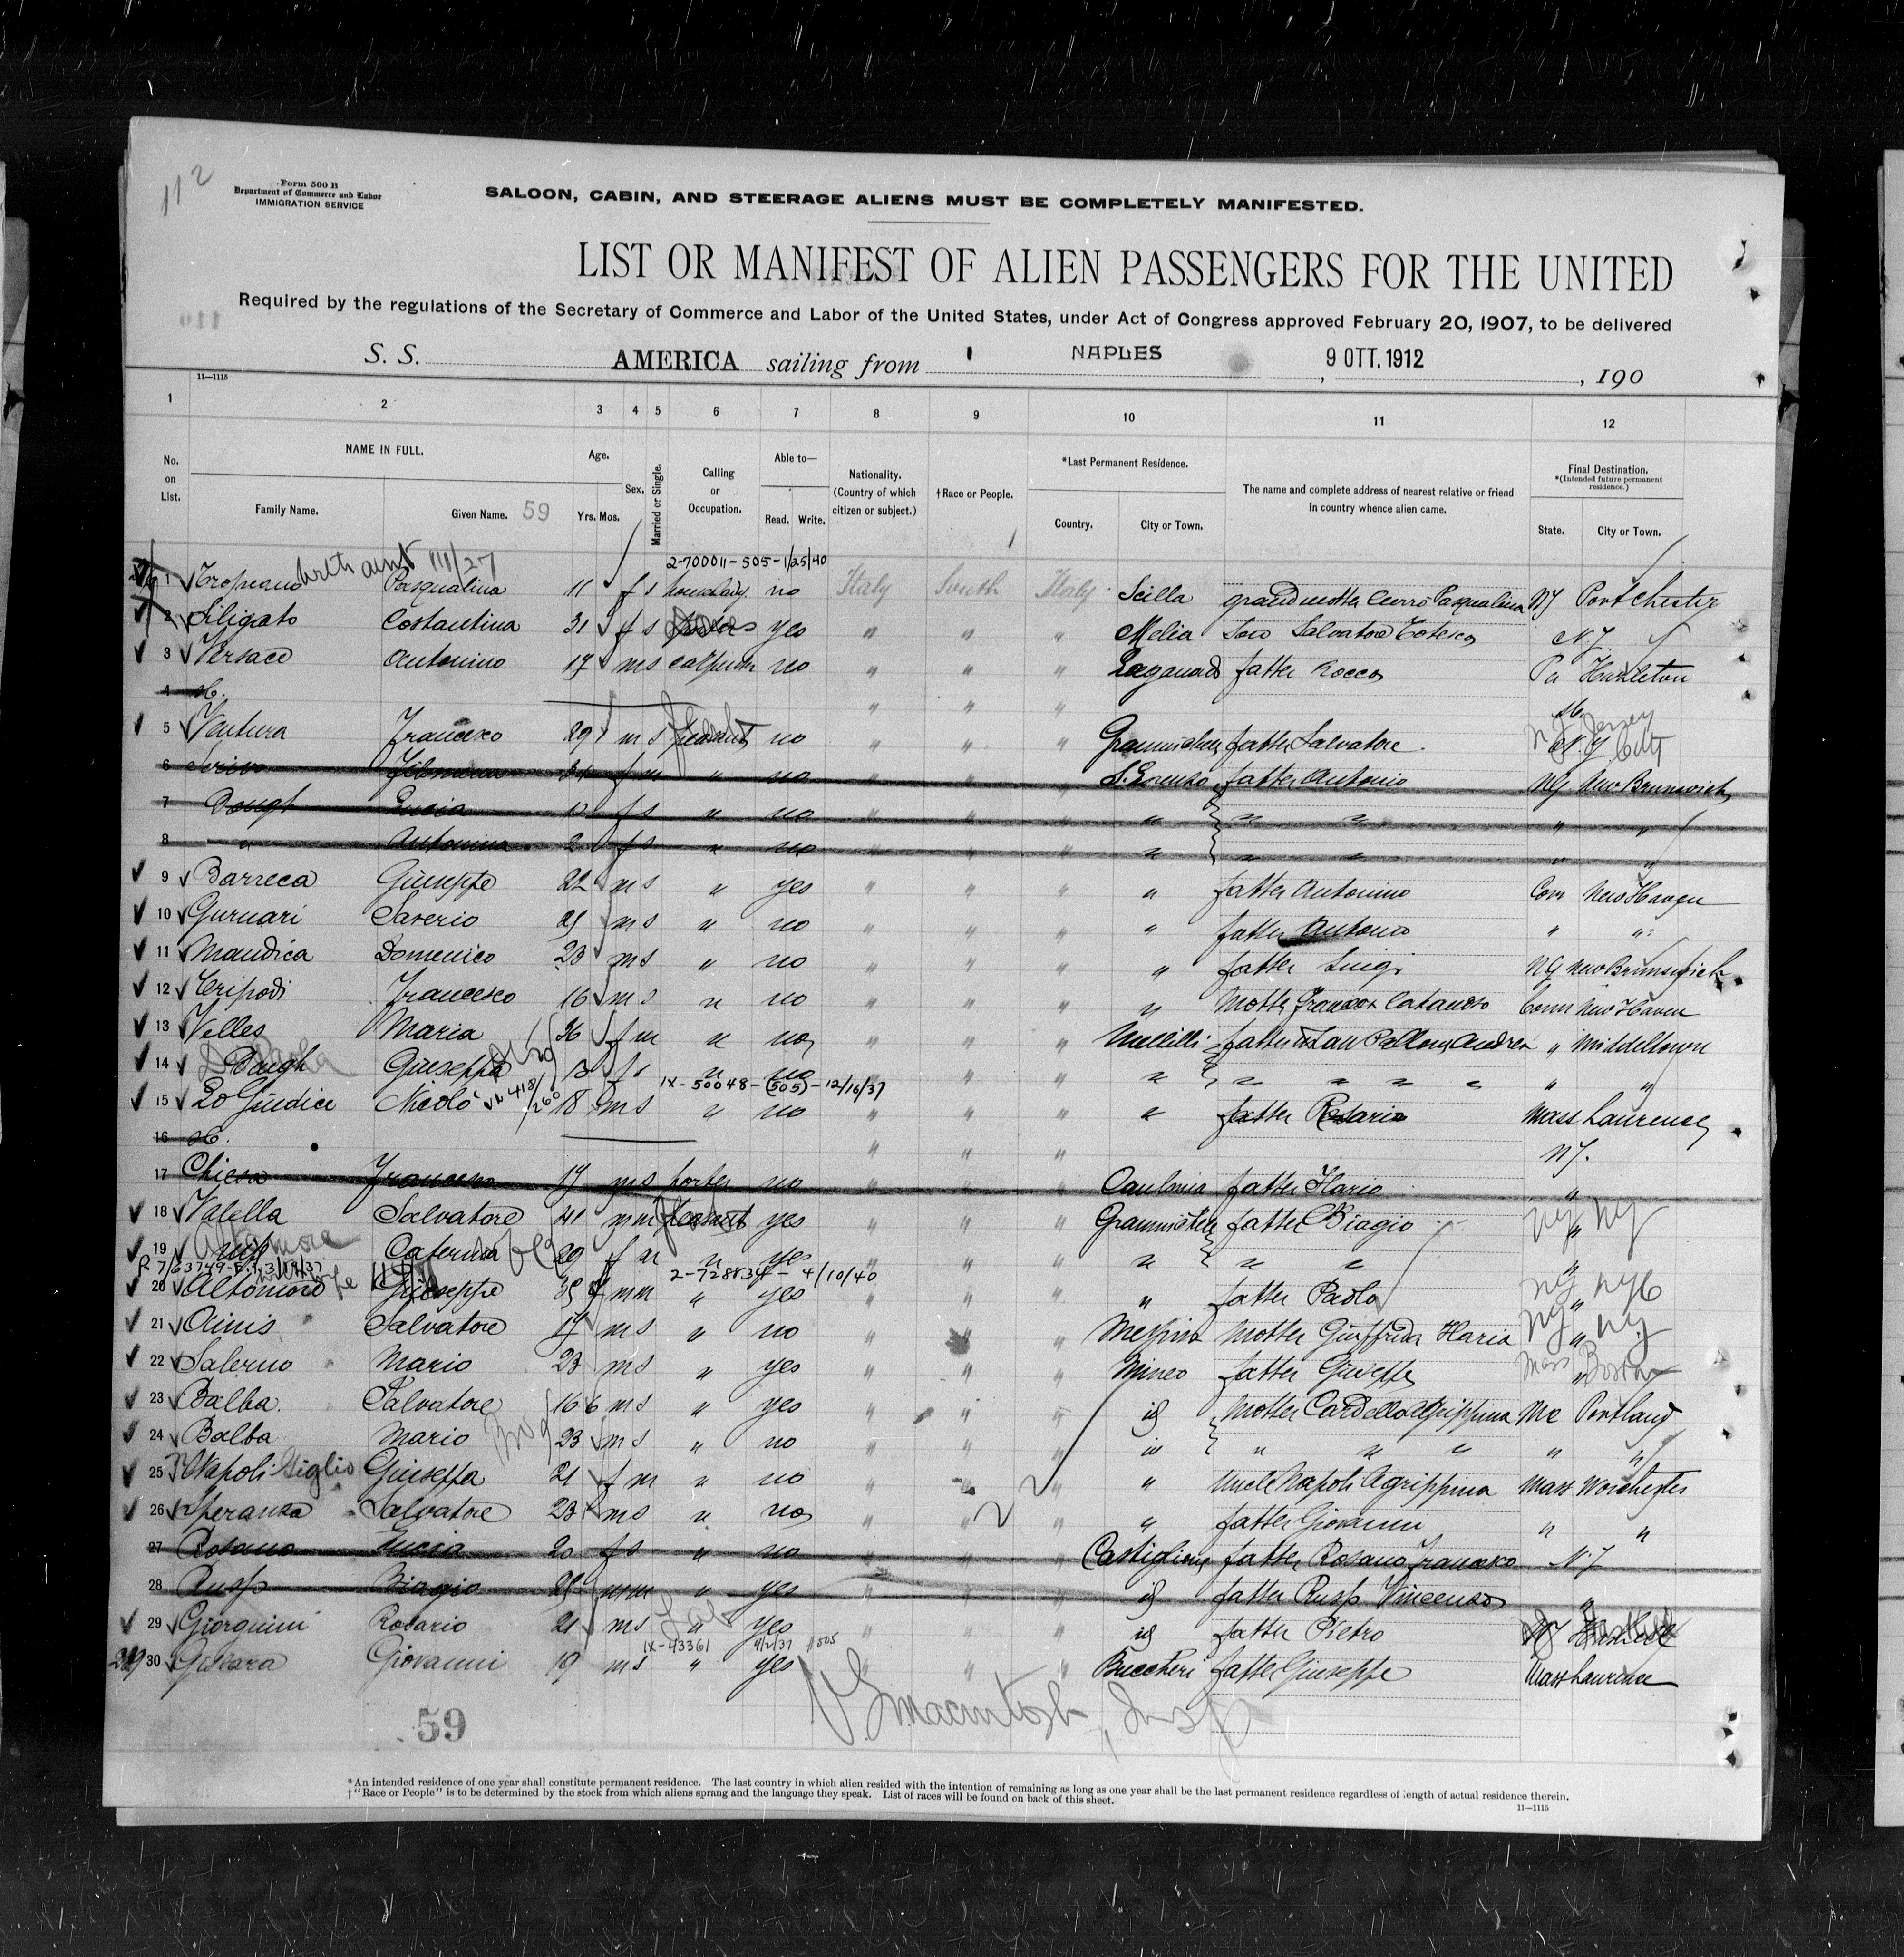 112
Form 500 B
Department of Commerce and Labor
IMMIGRATION SERVICE
SALOON, CABIN, AND STEERAGE ALIENS MUST BE COMPLETELY MANIFESTED.
LIST OR MANIFEST OF ALIEN PASSENGERS FOR THE UNITED
Required by the regulations of the Secretary of Commerce and Labor of the United States, under Act of Congress approved February 20, 1907, to be delivered
S. S. AMERICA sailing from NAPLES , 9 OTT. 1912 , 190
11—1115
1 2 3 4 5 6 7 8 9 10 11 12
No. on List.
NAME IN FULL.
Family Name. Given Name. 59
Age.
Yrs. Mos.
Sex.
Married or Single.
Calling or Occupation.
Able to—
Read. Write.
Nationality. (Country of which citizen or subject.)
†Race or People.
*Last Permanent Residence.
Country. City or Town.
The name and complete address of nearest relative or friend in country whence alien came.
Final Destination.
*(Intended future permanent residence.)
State. City or Town.
with aunt 111/27 2-70001-505-1/25/40
1 Tropeano Pasqualina 11 f s no Italy South Italy Scilla grandmother Pasqualina NY Portchester
2 Siligato Costantina 31 f s yes " " " Melia Salvatore N.Y.
3 Versace Antonino 17 m s no " " " father Rocco Pa Hazleton
4 " " "
5 Ventura Francesco 29 m s peasant no " " " father Salvatore N.J. Jersey City
6 Filomena f m " no " " " S. Lorenzo father Antonio NY New Brunswich
7 Lucia 12 f s " no " " " " " " " "
8 " Antonina 2 f s " no " " " " " " " "
9 Barreca Giuseppe 22 m s " yes " " " " father Antonino Conn New Haven
10 Gurnari Saverio m s " no " " " " father Antonio " "
11 Mandica Domenico 23 m s " no " " " " father Luigi NY New Brunswich
12 Tripodi Francesco 16 m s " no " " " " Mother Conn New Haven
13 Velles Maria 26 f m " no " " " father Andrea " Middeltown
14 Daugh Giuseppa 13 f s " no " " " " " " " " " "
1X-50048-(505)-12/16/37
15 Lo Giudice Nicolò 18 m s " no " " " " father Rosario Mass Laurence
16 " " " N.Y.
17 Chiesa Francesco 17 m s porter no " " " Caulonia father Ilario "
18 Valella Salvatore 41 m m peasant yes " " " father Biagio " NY NY
19 wife Altamore Caterina 20 f m " yes " " " " "
2-728834-4/10/40
20 Altomore Giuseppe 35 m m " yes " " " " father Paolo " NY NYC
21 Ainis Salvatore 17 m s " no " " " Messina Mother Giuffrida Maria " NY NY
22 Salerno Mario 23 m s " yes " " " Mineo father Giuseppe " Mass Boston
23 Balba Salvatore 16 6 m s " yes " " " id Mother Cardello Agrippina Me Portland
24 Balba Mario 23 m s " no " " " id " " " " "
25 Napoli Giglio Giuseppa 21 f m " no " " " " Uncle Napoli Agrippina Mass Worchester
26 Speranza Salvatore 23 m s " no " " " " father Giovanni " "
27 Rosano Lucia 20 f s " no " " " Castiglione father Rosano Francesco N.Y
28 Russo Biagio 28 m m " yes " " " id father Russo Vincenzo "
29 Giorgiuni Rosario 21 m s " yes " " " id father Pietro
1X-43361 4/2/37 505
30 Giovanni 19 m s " yes " " " Buccheri father Giuseppe Mass Laurence
59
Macintosh, Insp
*An intended residence of one year shall constitute permanent residence. The last country in which alien resided with the intention of remaining as long as one year shall be the last permanent residence regardless of length of actual residence therein.
†"Race or People" is to be determined by the stock from which aliens sprang and the language they speak. List of races will be found on back of this sheet.
11—1115